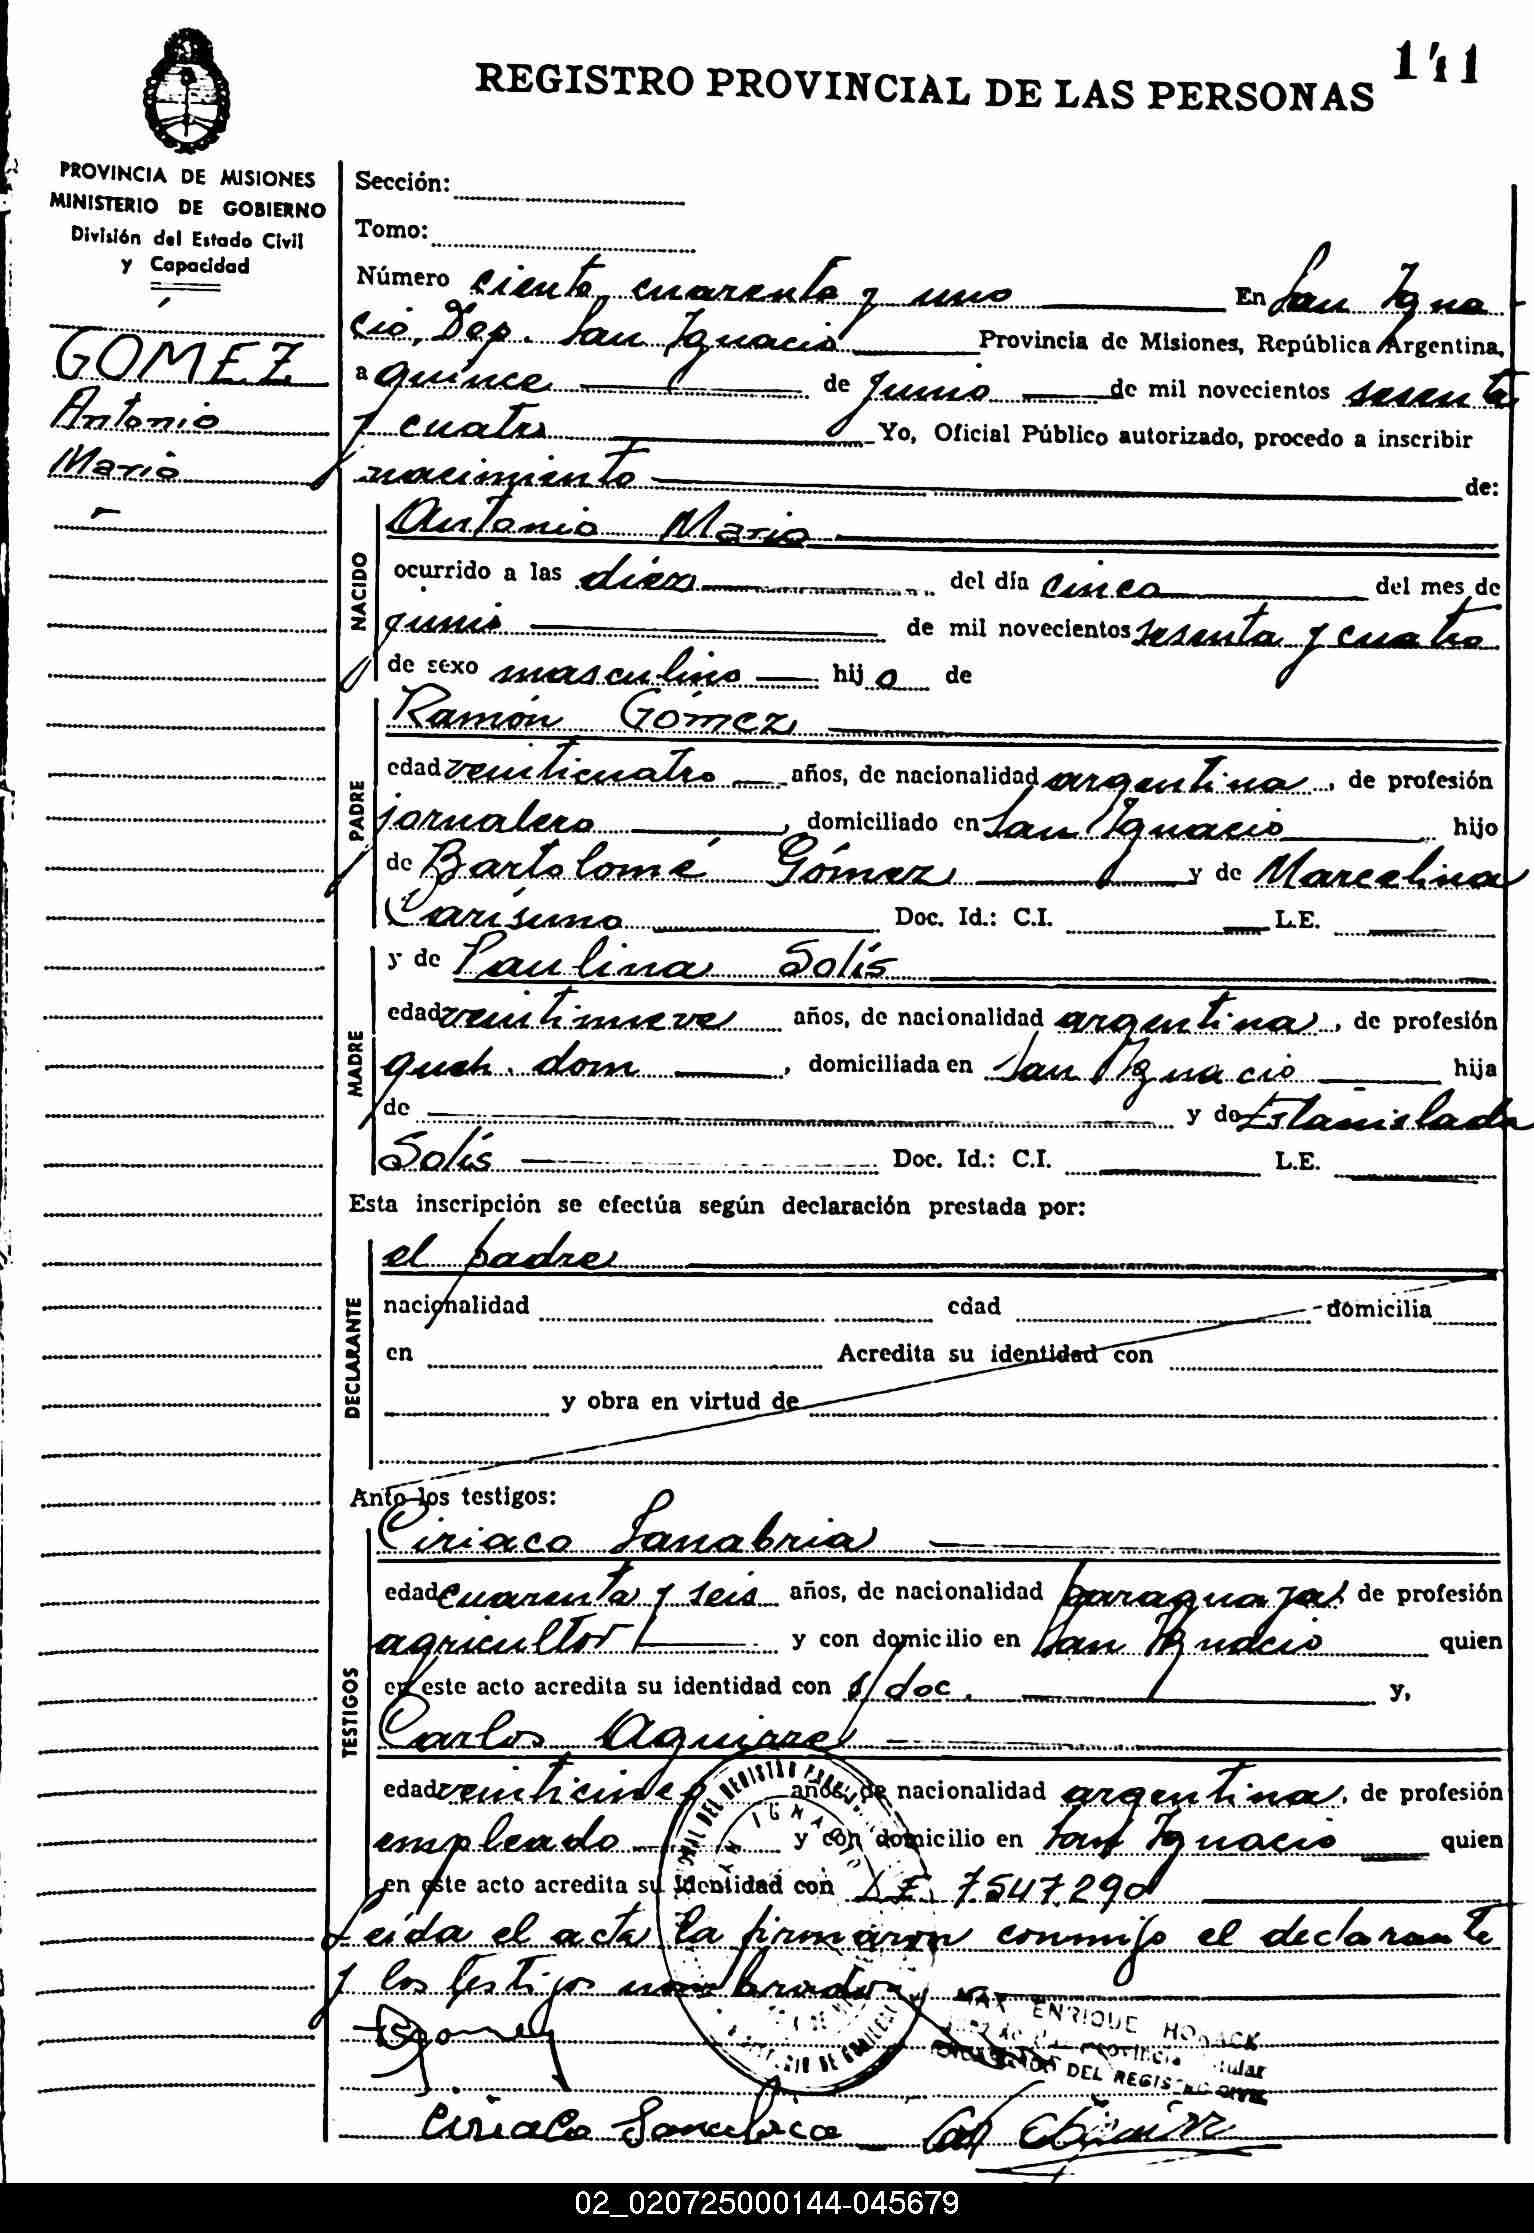 141
REGISTRO PROVINCIAL DE LAS PERSONAS
PROVINCIA DE MISIONES
MINISTERIO DE GOBIERNO
División del Estado Civil
y Capacidad
GOMEZ
Antonio
Mario
Sección:
Tomo:
Número ciento cuarenta y uno En San Igna
cio, Dep. San Ignacio Provincia de Misiones, República Argentina,
a quince de Junio de mil novecientos sesenta
y cuatro Yo, Oficial Público autorizado, procedo a inscribir
nacimiento de:
NACIDO
Antonio Mario
ocurrido a las diez del día cinco del mes de
junio de mil novecientos sesenta y cuatro
de sexo masculino hijo de
PADRE
Ramón Gómez
edad veinticuatro años, de nacionalidad argentina, de profesión
jornalero, domiciliado en San Ignacio hijo
de Bartolomé Gómez y de Marcelina
Carísimo Doc. Id.: C.I. L.E.
MADRE
y de Paulina Solís
edad veintinueve años, de nacionalidad argentina, de profesión
queh. dom, domiciliada en San Ignacio hija
de y de Estanislada
Solís Doc. Id.: C.I. L.E.
Esta inscripción se efectúa según declaración prestada por:
DECLARANTE
el padre
nacionalidad edad domicilia
en Acredita su identidad con
y obra en virtud de
Ante los testigos:
TESTIGOS
Ciriaco Sanabria
edad cuarenta y seis años, de nacionalidad paraguaya, de profesión
agricultor y con domicilio en San Ignacio quien
en este acto acredita su identidad con s/doc. y,
Carlos Aguirre
edad veinticinco años, de nacionalidad argentina, de profesión
empleado y con domicilio en San Ignacio quien
en este acto acredita su identidad con LE 7547290
Leída el acta la firmaron conmigo el declarante
y los testigos nombrados
RGomez
MAX ENRIQUE HORACK
DEL REGISTRO CIVIL
SAN IGNACIO
Ciriaco Sanabria
02_020725000144-045679